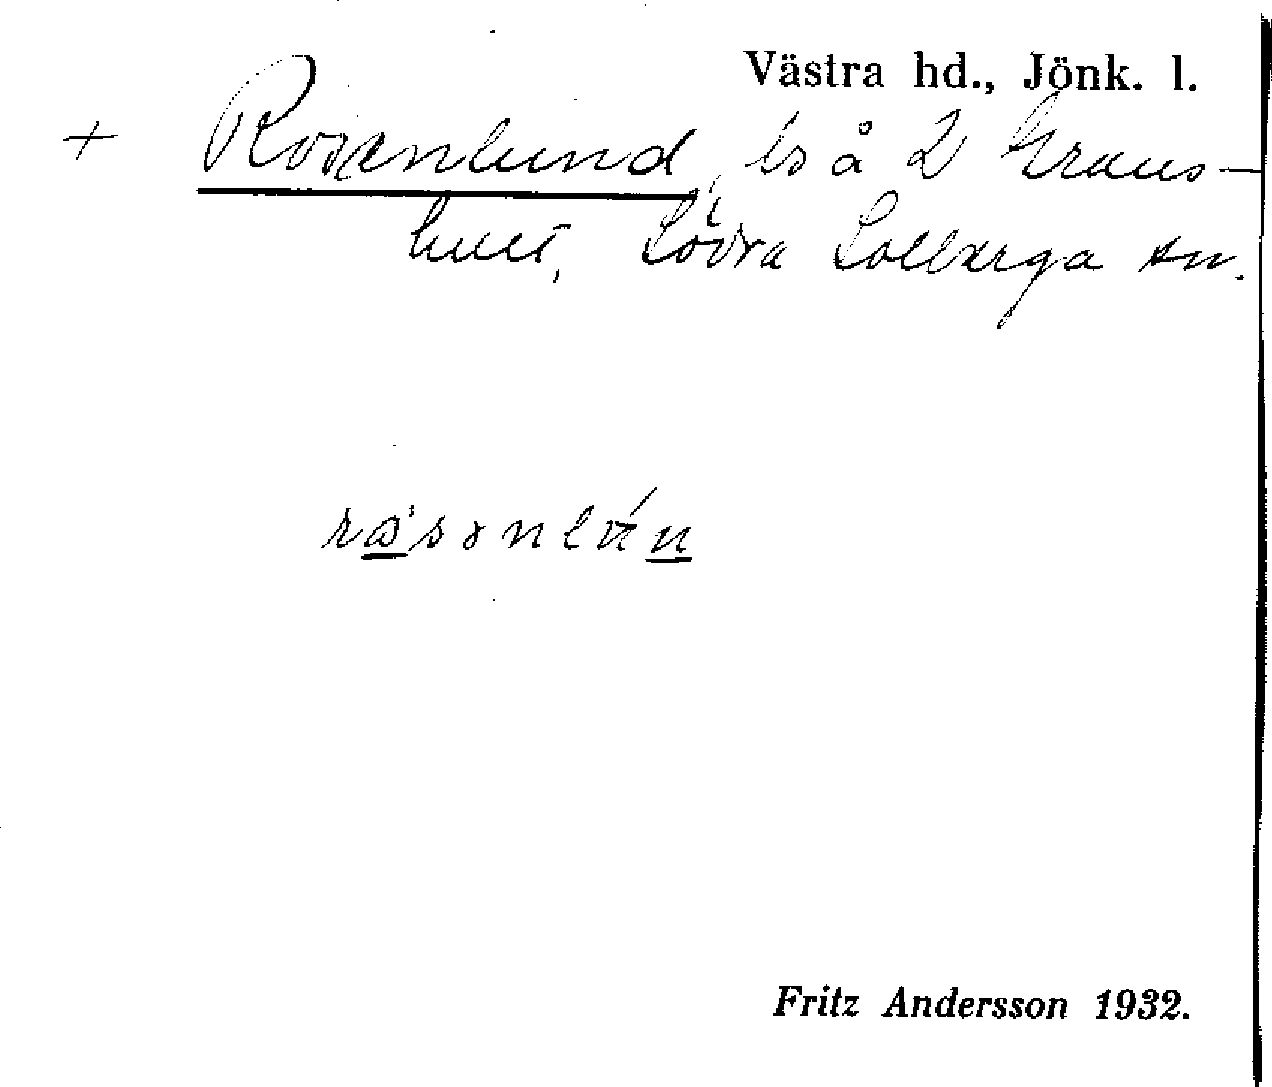 Västra hd., Jönk. l.
+ Rosenlund, ls å 2 Grans-
hult, Södra Solberga sn.
Fritz Andersson 1932.